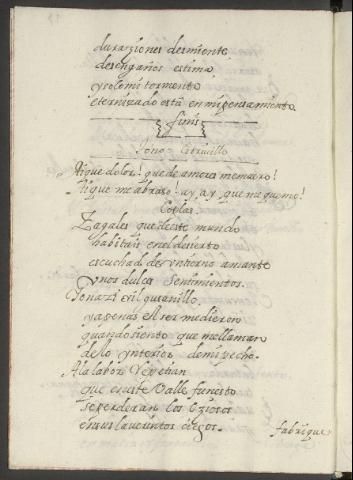 duraziones desmiente
desengaños estima
y solo mi tormento
eternizado está en mi pensamiento
finis
Tono
Ai que dolor! que de amores me muero!
Ai que me abraso! ay, ay, que me quemo!
Coplas
Zagales que deeste mundo
habitais en el desierto
escuchad de un tierno amante
unos dulces sentimientos.
Yo nazi vil gusanillo
y apenas el ser me dieron
quando siento que me llaman
de lo ynterior de mi pecho.
A la labor
que en este Valle funesto
se perderan los oziosos
en sus lavirintos ciegos.
fabrique